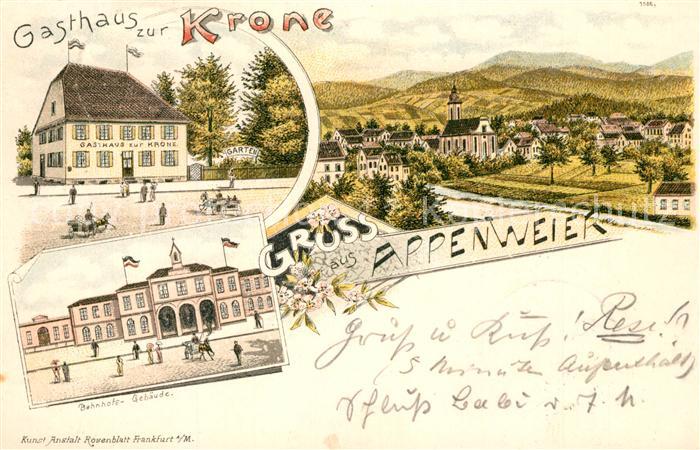 Gasthaus zur Krone
1586.
GASTHAUS ZUR KRONE.
GARTEN
GRUSS aus APPENWEIER
Gruß u Kuß! Resi!
(5 Minuten Aufenthalt)
Bahnhofs-Gebäude.
Kunst Anstalt Rosenblatt Frankfurt a/M.